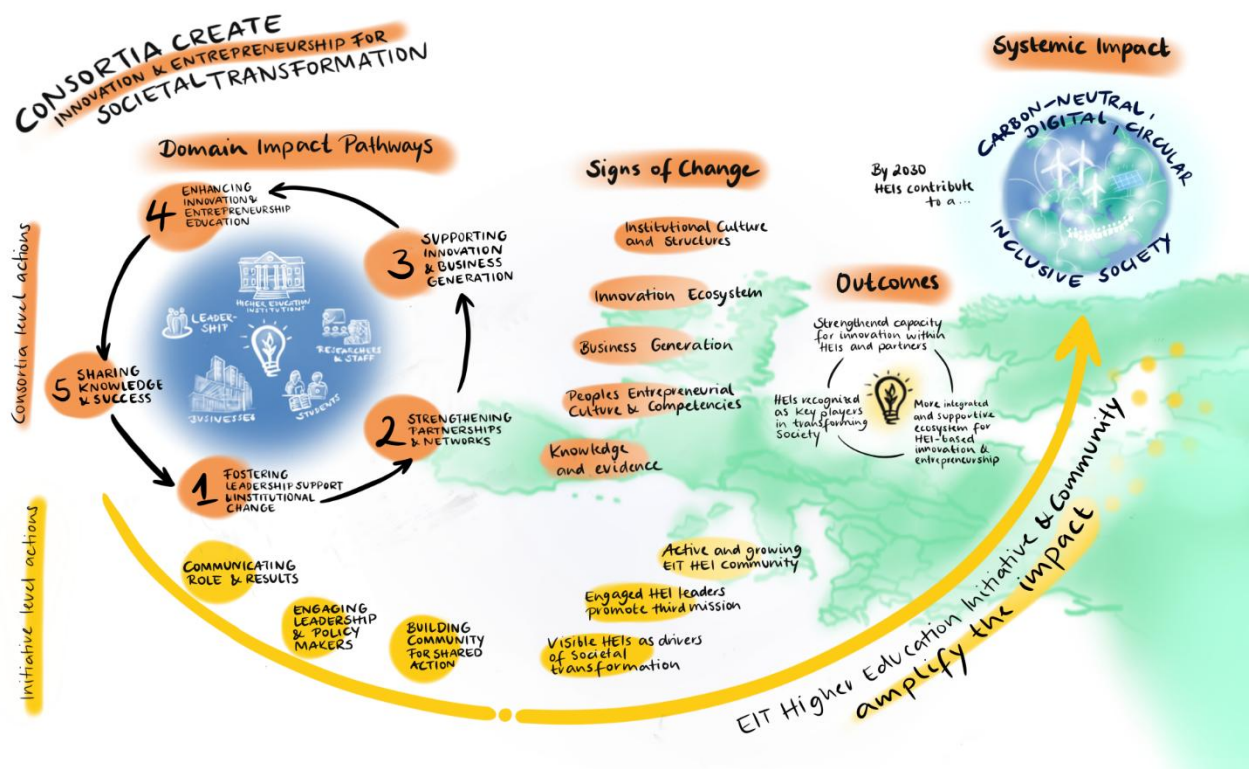 CONSORTIA CREATE
INNOVATION & ENTREPRENEURSHIP FOR
SOCIETAL TRANSFORMATION
Domain Impact Pathways
Consortia level actions
4
ENHANCING
INNOVATION &
ENTREPRENEURSHIP
EDUCATION
3
SUPPORTING
INNOVATION
& BUSINESS
GENERATION
5
SHARING
KNOWLEDGE
& SUCCESS
2
STRENGTHENING
PARTNERSHIPS
& NETWORKS
1
FOSTERING
LEADERSHIP SUPPORT
& INSTITUTIONAL
CHANGE
HIGHER EDUCATION
INSTITUTIONS
LEADER-
SHIP
RESEARCHERS
& STAFF
BUSINESSES
STUDENTS
Signs of Change
Institutional Culture
and Structures
Innovation Ecosystem
Business Generation
Peoples Entrepreneurial
Culture & Competencies
Knowledge
and evidence
Outcomes
Strengthened capacity
for innovation within
HEIs and partners
HEIs recognized
as key players
in transforming
Society
More integrated
and supportive
ecosystem for
HEI-based
innovation &
entrepreneurship
Systemic Impact
By 2030
HEIs contribute
to a...
CARBON-NEUTRAL,
DIGITAL, CIRCULAR
INCLUSIVE SOCIETY
Initiative level actions
COMMUNICATING
ROLE & RESULTS
ENGAGING
LEADERSHIP
& POLICY
MAKERS
BUILDING
COMMUNITY
FOR SHARED
ACTION
Active and growing
EIT HEI community
Engaged HEI leaders
promote third mission
Visible HEIs as drivers
of Societal
transformation
EIT Higher Education Initiative & Community
amplify the impact